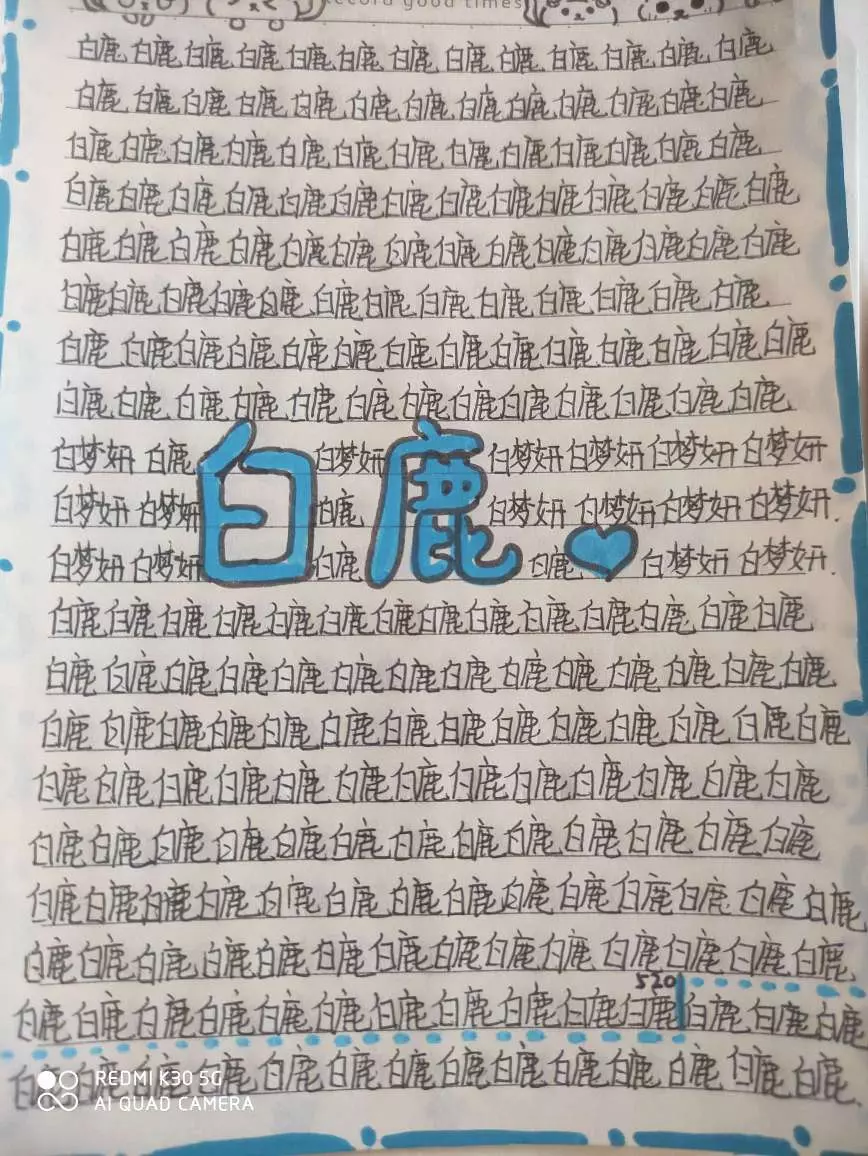 Record good times
白鹿 白鹿 白鹿 白鹿 白鹿 白鹿 白鹿 白鹿 白鹿 白鹿 白鹿 白鹿 白鹿
白鹿 白鹿 白鹿 白鹿 白鹿 白鹿 白鹿 白鹿 白鹿 白鹿 白鹿 白鹿 白鹿
白鹿 白鹿 白鹿 白鹿 白鹿 白鹿 白鹿 白鹿 白鹿 白鹿 白鹿 白鹿 白鹿
白鹿 白鹿 白鹿 白鹿 白鹿 白鹿 白鹿 白鹿 白鹿 白鹿 白鹿 白鹿 白鹿 白鹿
白鹿 白鹿 白鹿 白鹿 白鹿 白鹿 白鹿 白鹿 白鹿 白鹿 白鹿 白鹿 白鹿 白鹿
白鹿 白鹿 白鹿 白鹿 白鹿 白鹿 白鹿 白鹿 白鹿 白鹿 白鹿 白鹿 白鹿
白鹿 白鹿 白鹿 白鹿 白鹿 白鹿 白鹿 白鹿 白鹿 白鹿 白鹿 白鹿 白鹿 白鹿
白鹿 白鹿 白鹿 白鹿 白鹿 白鹿 白鹿 白鹿 白鹿 白鹿 白鹿 白鹿 白鹿
白梦妍 白鹿 白梦妍 白梦妍 白梦妍 白梦妍 白梦妍
白鹿
白梦妍 白梦妍 白鹿 白梦妍 白梦妍 白梦妍 白梦妍.
白梦妍 白梦妍 白鹿 白鹿 白梦妍 白梦妍.
白鹿 白鹿 白鹿 白鹿 白鹿 白鹿 白鹿 白鹿 白鹿 白鹿 白鹿 白鹿 白鹿 白鹿
白鹿 白鹿 白鹿 白鹿 白鹿 白鹿 白鹿 白鹿 白鹿 白鹿 白鹿 白鹿 白鹿 白鹿
白鹿 白鹿 白鹿 白鹿 白鹿 白鹿 白鹿 白鹿 白鹿 白鹿 白鹿 白鹿 白鹿 白鹿
白鹿 白鹿 白鹿 白鹿 白鹿 白鹿 白鹿 白鹿 白鹿 白鹿 白鹿 白鹿 白鹿
白鹿 白鹿 白鹿 白鹿 白鹿 白鹿 白鹿 白鹿 白鹿 白鹿 白鹿 白鹿 白鹿
白鹿 白鹿 白鹿 白鹿 白鹿 白鹿 白鹿 白鹿 白鹿 白鹿 白鹿 白鹿 白鹿 白鹿
白鹿 白鹿 白鹿 白鹿 白鹿 白鹿 白鹿 白鹿 白鹿 白鹿 白鹿 白鹿 白鹿 白鹿
520
白鹿 白鹿 白鹿 白鹿 白鹿 白鹿 白鹿 白鹿 白鹿 白鹿 白鹿 白鹿 白鹿 白鹿
白鹿 白鹿 白鹿 白鹿 白鹿 白鹿 白鹿 白鹿 白鹿 白鹿 白鹿 白鹿 白鹿
REDMI K30 5G
AI QUAD CAMERA